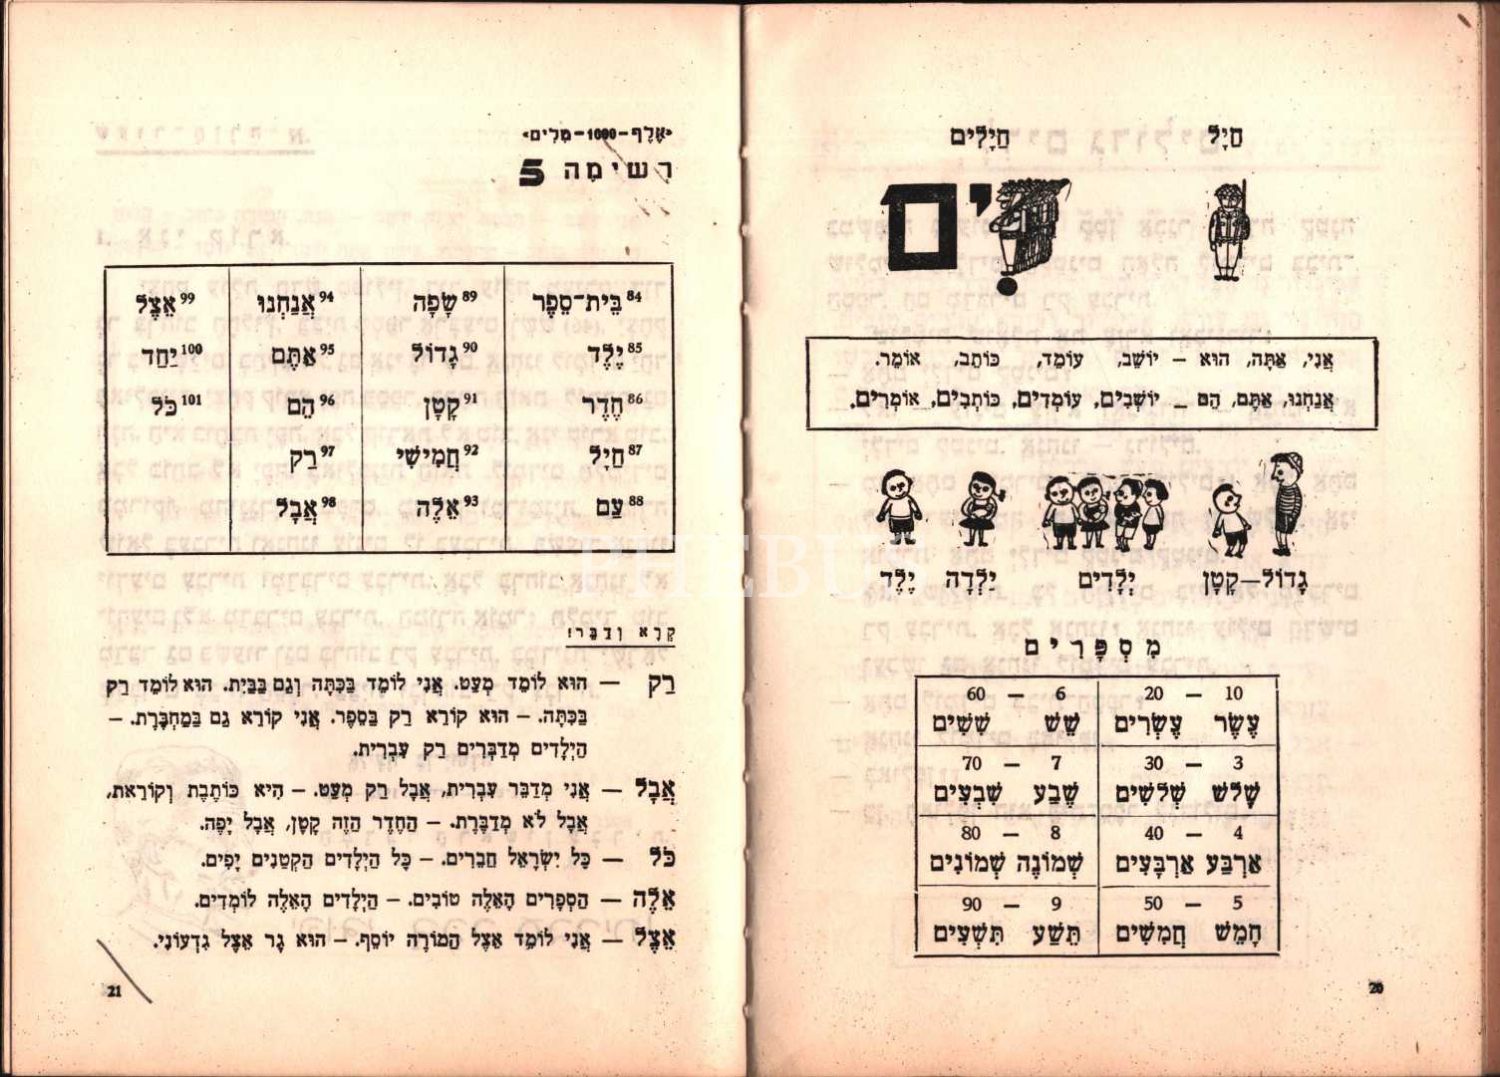 חַיָּל חַיָּלִים
ים
אֲנִי, אַתָּה, הוּא — יוֹשֵׁב, עוֹמֵד, כּוֹתֵב, אוֹמֵר.
אֲנַחְנוּ, אַתֶּם, הֵם — יוֹשְׁבִים, עוֹמְדִים, כּוֹתְבִים, אוֹמְרִים.
גָּדוֹל—קָטָן יְלָדִים יַלְדָּה יֶלֶד
מִסְפָּרִים
10 — 20 6 — 60
עֶשֶׂר עֶשְׂרִים שֵׁשׁ שִׁשִּׁים
3 — 30 7 — 70
שָׁלֹשׁ שְׁלֹשִׁים שֶׁבַע שִׁבְעִים
4 — 40 8 — 80
אַרְבַּע אַרְבָּעִים שְׁמוֹנֶה שְׁמוֹנִים
5 — 50 9 — 90
חָמֵשׁ חֲמִשִּׁים תֵּשַׁע תִּשְׁעִים
20
«אֶלֶף–1000–מִלִּים»
רְשִׁימָה 5
84 בֵּית־סֵפֶר 89 שָׂפָה 94 אֲנַחְנוּ 99 אֵצֶל
85 יֶלֶד 90 גָּדוֹל 95 אַתֶּם 100 יַחַד
86 חֶדֶר 91 קָטָן 96 הֵם 101 כֹּל
87 חַיָּל 92 חֲמִישִׁי 97 רַק
88 עַם 93 אֵלֶּה 98 אֲבָל
קְרָא וְדַבֵּר!
רַק — הוּא לוֹמֵד מְעַט. אֲנִי לוֹמֵד בַּכִּתָּה וְגַם בַּבַּיִת. הוּא לוֹמֵד רַק
בַּכִּתָּה. – הוּא קוֹרֵא רַק בַּסֵּפֶר. אֲנִי קוֹרֵא גַם בַּמַּחְבֶּרֶת. –
הַיְלָדִים מְדַבְּרִים רַק עִבְרִית.
אֲבָל — אֲנִי מְדַבֵּר עִבְרִית, אֲבָל רַק מְעַט. – הִיא כּוֹתֶבֶת וְקוֹרֵאת,
אֲבָל לֹא מְדַבֶּרֶת. – הַחֶדֶר הַזֶּה קָטָן, אֲבָל יָפֶה.
כֹּל — כָּל יִשְׂרָאֵל חֲבֵרִים. – כָּל הַיְלָדִים הַקְּטַנִּים יָפִים.
אֵלֶּה — הַסְּפָרִים הָאֵלֶּה טוֹבִים. – הַיְלָדִים הָאֵלֶּה לוֹמְדִים.
אֵצֶל — אֲנִי לוֹמֵד אֵצֶל הַמּוֹרֶה יוֹסֵף. – הוּא גָר אֵצֶל גִּדְעוֹנִי.
21
PHEBUS